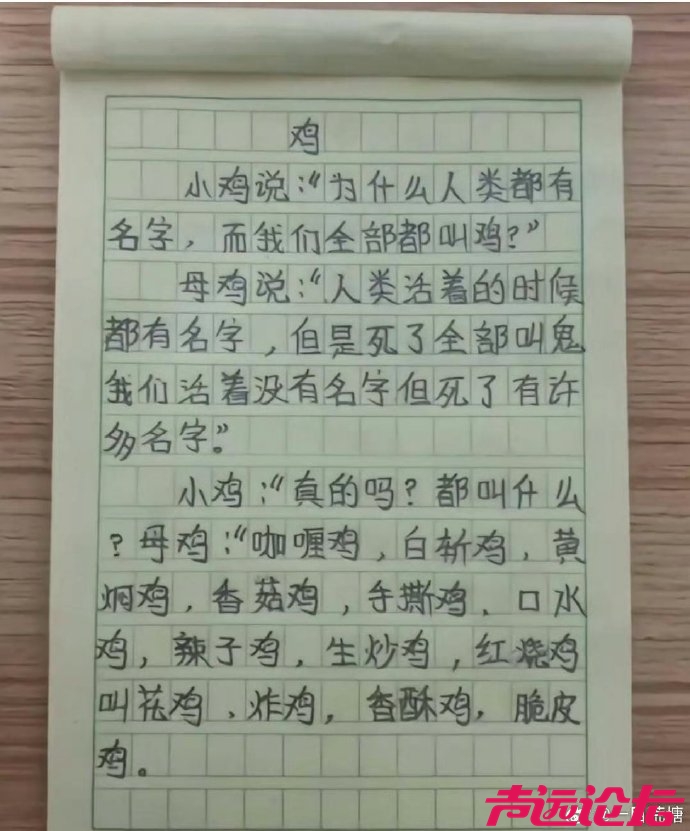 鸡
小鸡说:“为什么人类都有
名字，而我们全部都叫鸡?”
母鸡说:“人类活着的时候
都有名字，但是死了全部叫鬼
我们活着没有名字但死了有许
多名字”。
小鸡:“真的吗?都叫什么
?母鸡:“咖喱鸡，白斩鸡，黄
焖鸡，香菇鸡，手撕鸡、口水
鸡，辣子鸡，生炒鸡，红烧鸡
叫花鸡、炸鸡，香酥鸡，脆皮
鸡。
声远论坛